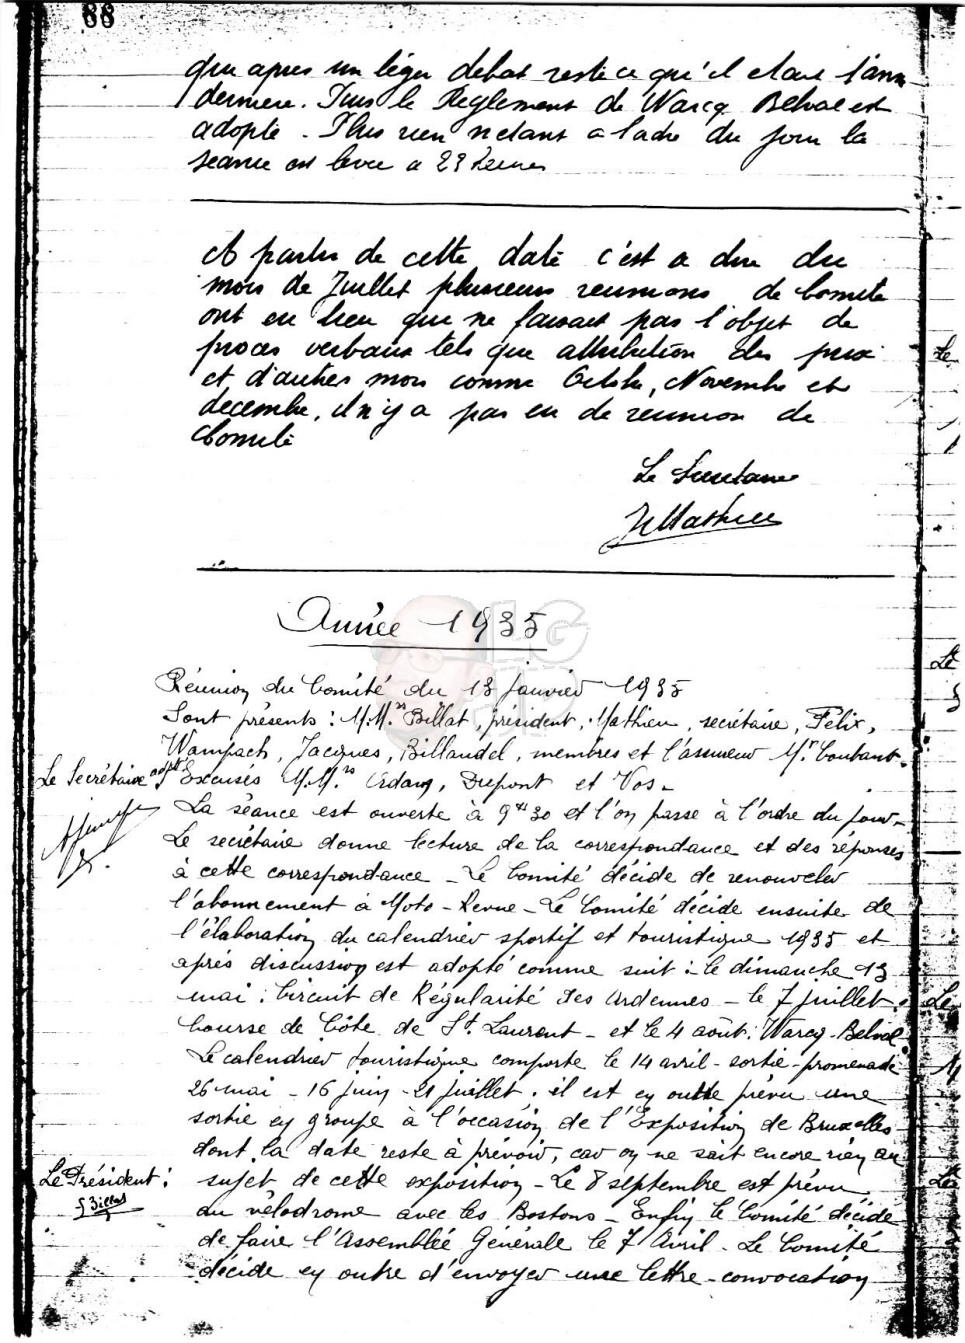 88
que apres un léger debat reste ce qu'il etait l'ann
derniere. Puis le Reglement de Warcq Belval est
adopté. Plus rien n'etant a l'odre du jour la
seance est levée a 23 heures
A partir de cette date c'est a dire du
mois de Juillet plusieurs reunions de Comite
ont eu lieu que ne faisait pas l'objet de
proces verbaux tels que attribution des prix
et d'autres mois comme Octobre, Novembre et
decembre, il n'y a pas eu de reunion de
Comité
Le Secretaire
J Mathieu
Année 1935
Réunion du Comité du 13 Janvier 1935
Sont présents: M.M.rs Billat, président, Mathieu, secrétaire, Félix,
Wampach, Jacques, Billaudel, membres et l'assureur Mr Coubant.
Le Secrétaire adjt:
Excusés M.M.rs Adam, Dupont et Vos.
La séance est ouverte à 9H30 et l'on passe à l'ordre du jour.
Le secrétaire donne lecture de la correspondance et des réponses
à cette correspondance - Le Comité décide de renouveler
l'abonnement à Moto-Revue - Le Comité décide ensuite de
l'élaboration du calendrier sportif et touristique 1935 et
après discussion est adopté comme suit: le dimanche 13
mai: Circuit de Régularité des Ardennes - le 7 juillet:
Course de Côte de St Laurent - et le 4 août: Warcq-Belval
Le calendrier touristique comporte le 14 avril - sortie-promenade
26 mai - 16 juin - 21 juillet. il est en outre prévu une
sortie en groupe à l'occasion de l'Exposition de Bruxelles
dont la date reste à prévoir, car on ne sait encore rien au
Le Président:
G Billat
sujet de cette exposition - Le 8 septembre est prévu
au vélodrome avec les Bostons - Enfin le Comité décide
de faire l'Assemblée Générale le 7 Avril. Le Comité
décide en outre d'envoyer une lettre-convocation